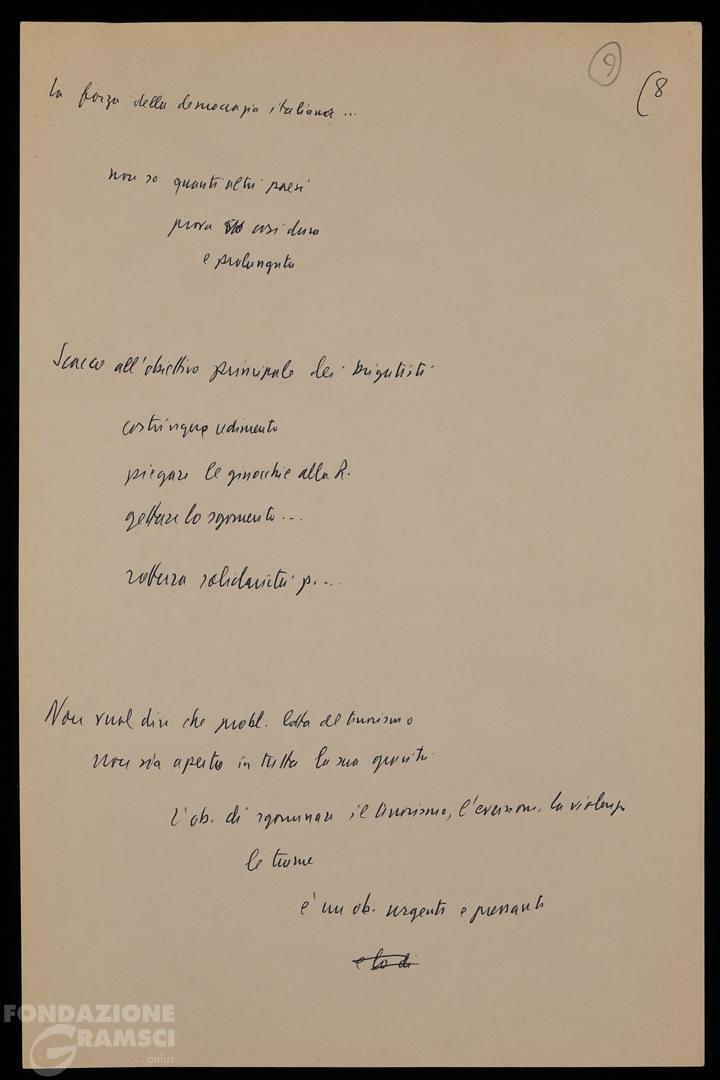 9
(8
la forza della democrazia italiana ...
non so quanti altri paesi
prova così dura
e prolungata
Scacco all'obiettivo principale dei brigatisti
costringere cedimento
piegare le ginocchie alla R.
gettare lo sgomento ...
solidarietà p. ...
Non vuol dire che probl. lotta al terrorismo
non sia aperto in tutta la sua gravità
L'ob. di sgominare il terrorismo, l'eversione, la violenza
le trame
è un ob. urgente e pressante
e lo di
FONDAZIONE
GRAMSCI
onlus